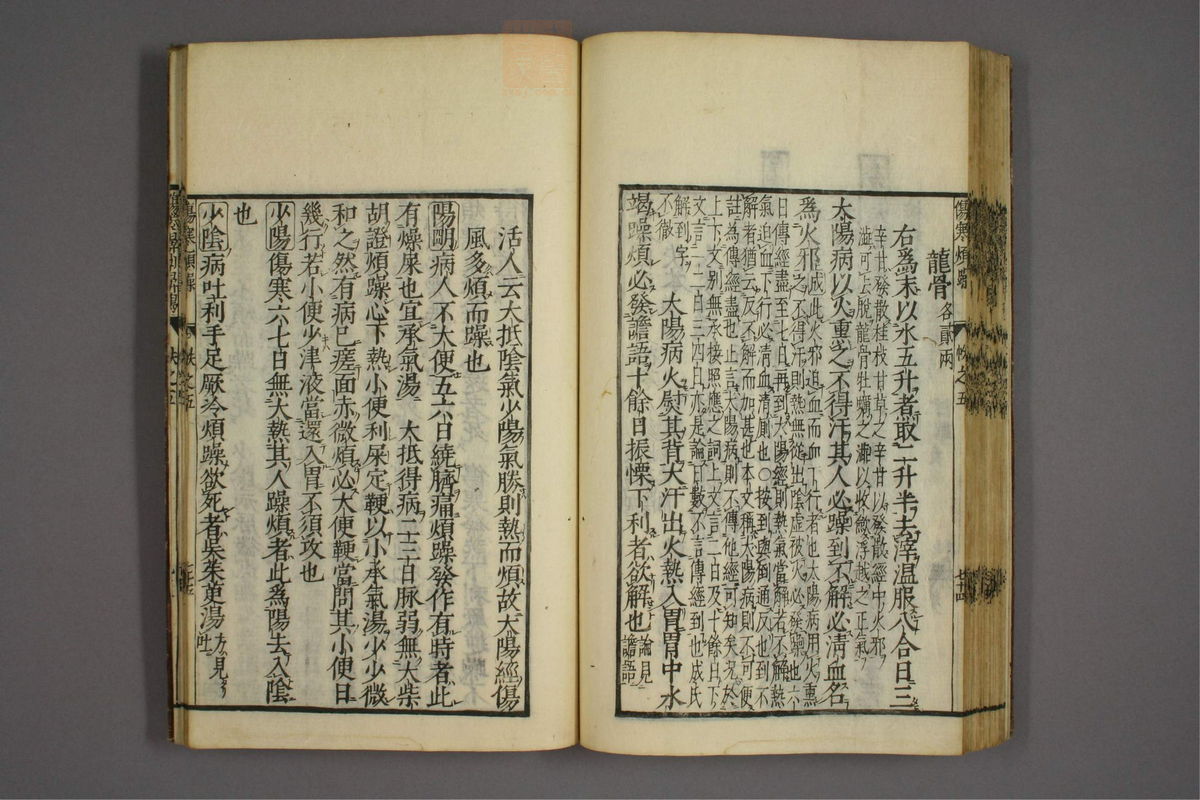 傷寒煩躁
帙之五
龍骨各貳兩
右爲末以水五升煮取二升半去滓温服八合日三
辛甘發散桂枝甘草之辛甘以發散經中火邪
澁可去脫龍骨牡蠣之澁以收斂浮越之正氣
太陽病以火熏之不得汗其人必躁到不解必淸血名
爲火邪成此火邪迫血而血下行者也太陽病用火熏
之不得汗則熱無從出陰虛被火必發躁也六
日傳經盡至七日再到太陽經則熱氣當解若不解熱
氣迫血下行必淸血淸厠也○按到與倒通反也到不
解者猶云反不解而加甚也本文稱太陽病則不可便
註為傳經盡也止言太陽病則不傳他經可知矣况於
上下文別無承接照應之詞上文言二日及十餘日下
文言二三日三四日亦是論日數不言傳經到也成氏
解到字
不徹
太陽病火熨其背大汗出火熱入胃胃中水
竭躁煩必發譫語十餘日振慄下利者欲解也論見
譫語
活人云大抵陰氣少陽氣勝則熱而煩故太陽經傷
風多煩而躁也
陽明病人不大便五六日繞臍痛煩躁發作有時者此
有燥屎也宜承氣湯 大抵得病二三日脉弱無大柴
胡證煩躁心下熱小便利屎定鞕以小承氣湯少少微
和之然有病已瘥面赤微煩必大便鞕當問其小便日
幾行若小便少津液當還入胃不須攻也
少陽傷寒六七日無大熱其人躁煩者此爲陽去入陰
也
少陰病吐利手足厥冷煩躁欲死者吳茱萸湯方見
吐
傷寒煩躁
帙之五